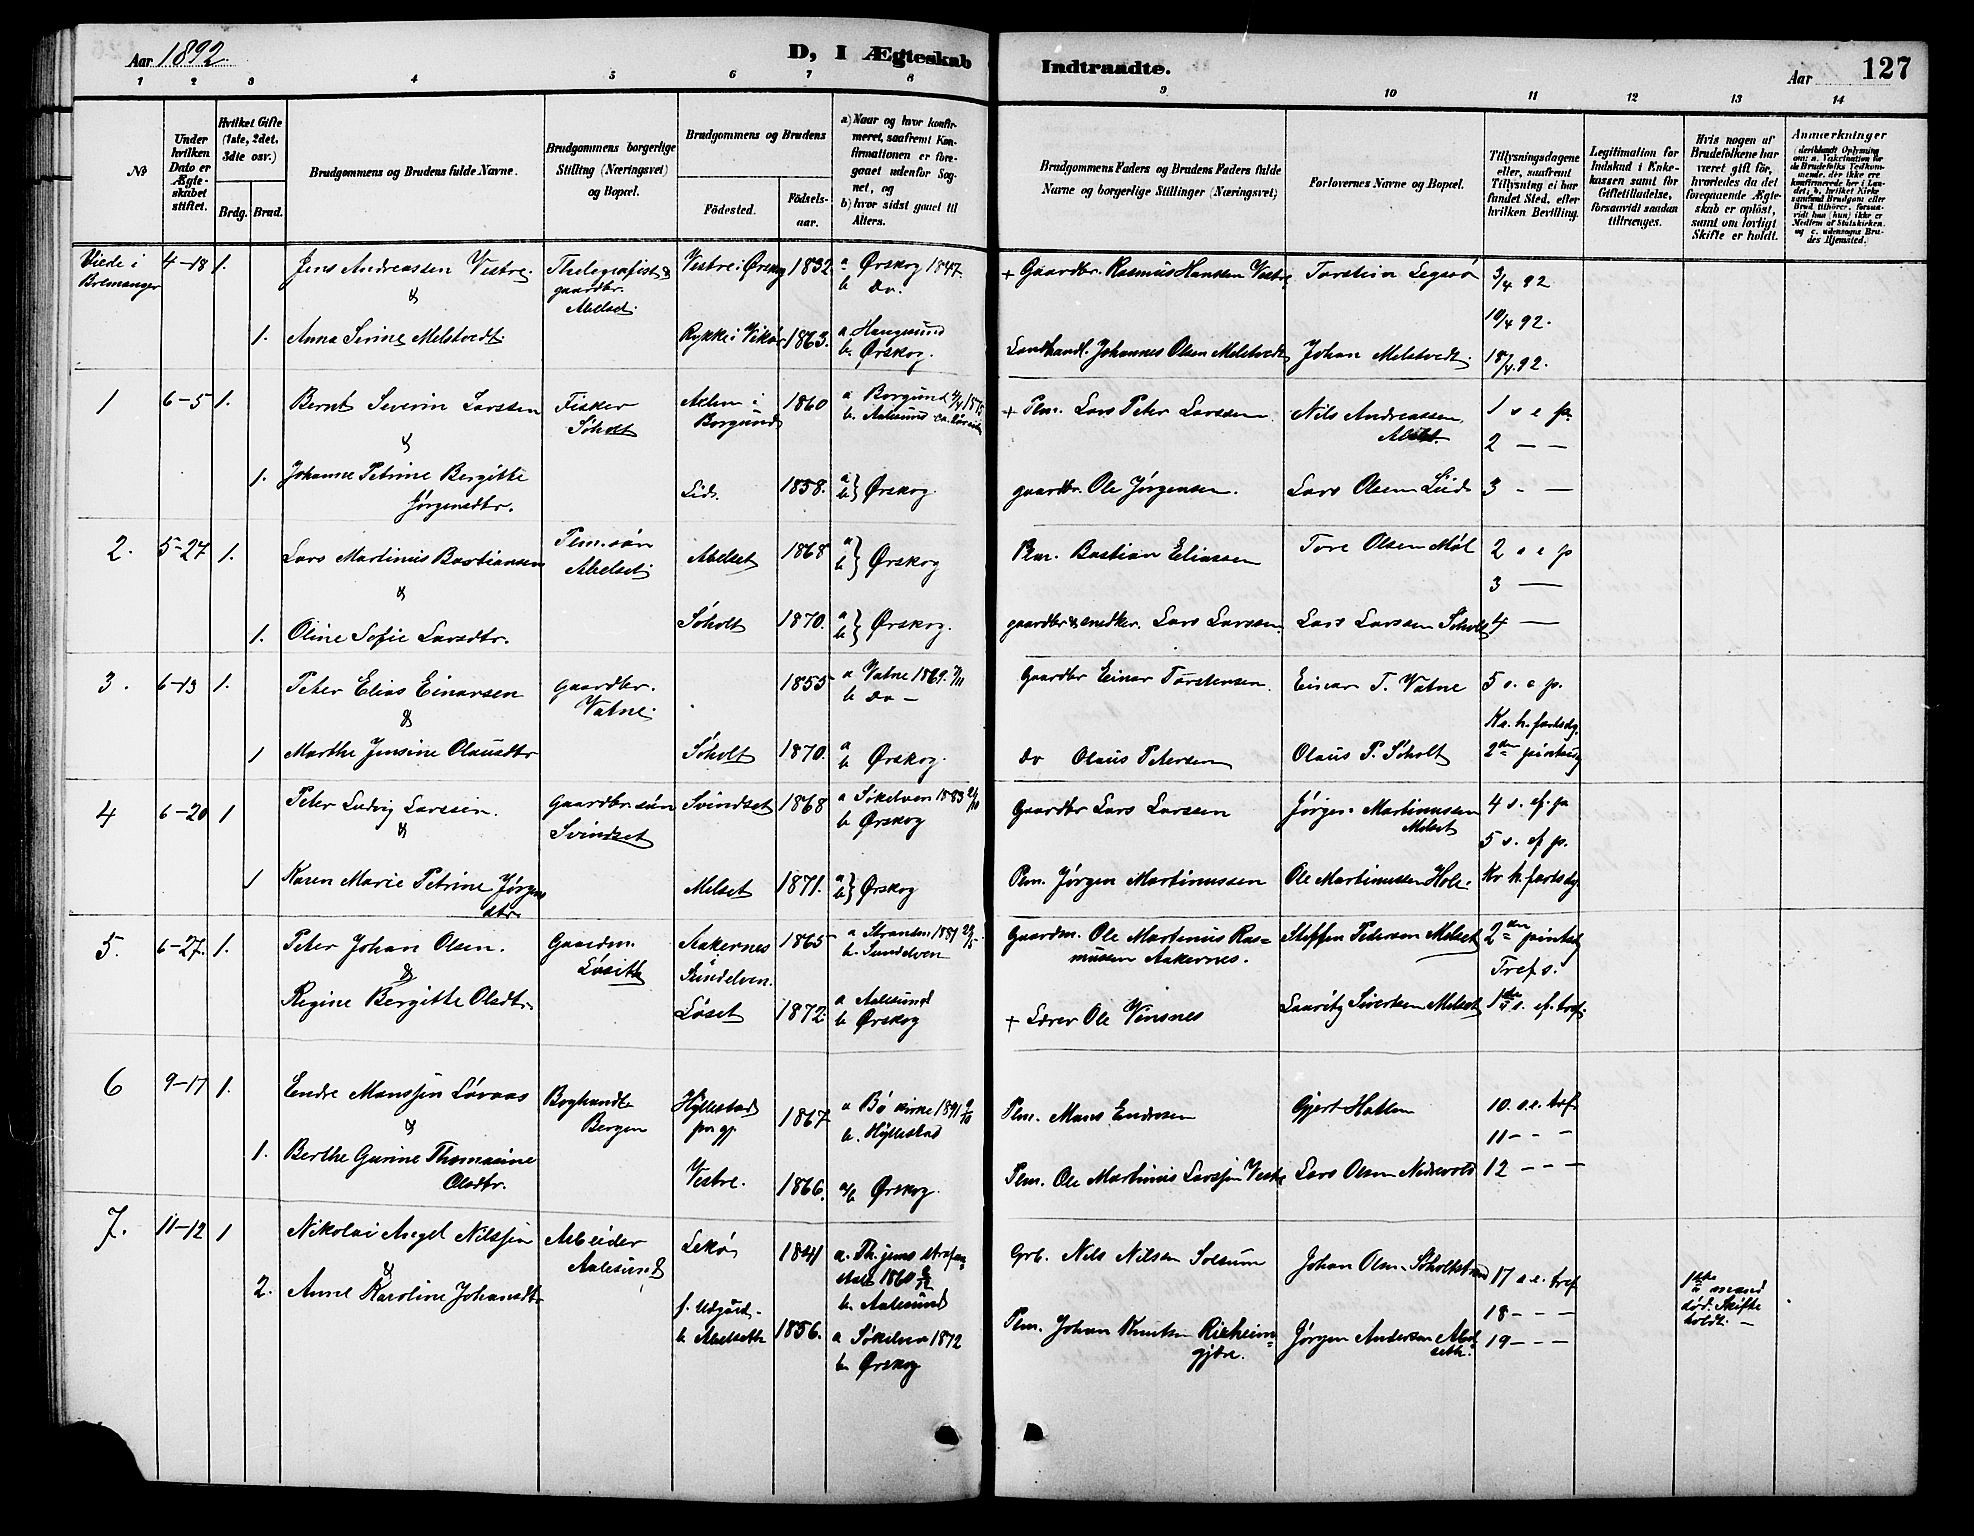 Aar 1892.
D, I Ægteskab Indtraadte.
Aar
127
1 2 3 4 5 6 7 8 9 10 11 12 13 14
No
Under hvilken Dato er Ægteskabet stiftet.
Hvilket Gifte (1ste, 2det, 3die osv.)
Brdg. Brud.
Brudgommens og Brudens fulde Navne.
Brudgommens borgerlige Stilling (Næringsvei) og Bopæl.
Brudgommens og Brudens
Fødested.
Fødselsaar.
a) Naar og hvor konfirmeret, saafremt Konfirmationen er foregaaet udenfor Sognet, og
b) hvor sidst gaaet til Alters.
Brudgommens Faders og Brudens Faders fulde Navne og borgerlige Stillinger (Næringsvei)
Forlovernes Navne og Bopæl.
Tillysningsdagene eller, saafremt Tillysning ei har fundet Sted, efter hvilken Bevilling.
Legitimation for Indskud i Enkekassen samt for Giftetilladelse, forsaavidt saadan tiltrænges.
Hvis nogen af Brudefolkene har været gift før, hvorledes da det foregaaende Ægteskab er opløst, samt om lovligt Skifte er holdt.
Anmærkninger
Viede i Bremanger
4-18 1. Jens Andreassen Vestre. Thelegrafist & gaardbr. Abelset. Vestre i Ørskog 1832 a Ørskog 1847 b Do. + Gaardbr. Rasmus Hanssen Vestre Torstein Legsør 3/4 92
&
10/4 92.
1. Anna Serine Melstvedt. Rykke i Vikør 1863. a Haugesund b. Ørskog. Landhandl. Johannes Olsen Melstvedt Johan Melstvedt. 18/4 92.
1 6-5 1. Bernt Severin Larssen Fisker Søholt Axlen i Borgund 1860 a Borgund b. Aalesund + Plm. Lars Peter Larssen Nils Andreassen Abset. 1 s e p.
&
2 — —
1. Johanne Petrine Bergitte Jørgensdtr. Lid. 1858. a b } Ørskog. gaardbr. Ole Jørgensen. Lars Olsen Liid 3 - —
2. 5-27 1. Lars Martinus Bastiansen Plm. søn Abelset. Abelset 1868 a b } Ørskog Plm. Bastian Eliassen Tore Olsen Møl 2 s e p
&
3 —
1. Oline Sofie Larsdtr. Søholt 1870. a b } Ørskog. gaardbr & snedker. Lars Larssen. Lars Larssen Søholt 4 —
3. 6-13 1. Peter Elias Einarsen gaardbr. Vatne. 1855 a Vatne 1869. b Do - Gaardbr Einar Torstensen. Einar T. Vatne 5 s. e p.
&
Kr. h. fartsdg.
1 Marthe Jensine Olausdtr Søholt 1870. a b Ørskog. do Olaus Petersen Olaus P. Søholt 2den pintsdg
4 6-20 1 Peter Ludvig Larssen. gaardbr. søn Svindset Svindset 1868 a Søkelven 1883 b Ørskog Gaardbr Lars Larssen Jørgen Martinussen Melset 4 s. ef. p
&
5 s. ef p.
1 Karen Marie Petrine Jørgensdtr. Melset 1871. a b } Ørskog Plm. Jørgen Martinussen Ole Martinussen Hole. Kr h. fartsdg.
5. 6-27. 1. Peter Johan Olsen. Gaardm. Løsith Aakernes Sundelven. 1865 a Stranden 1881 b. Sundelven Gaardm. Ole Martinus Rasmussen Aakernes. Steffen Pedersen Melset 2den pintsdg
&
Tref s.
Regine Bergitte Olsdtr. Løset 1872 a Aalesund b Ørskog + Lærer Ole Vinsnes Lauritz Sivertsen Melset 1ste s. ef. tref.
6 9-17 1. Endre Mansjen Løvaas Boghandl Bergen Hyllestad prgj. 1867 a Bø kirke b. Hyllestad Plm. Mans Endresen Gjert Hatlen 10. s.e. tref.
&
11 - - -
1. Berthe Gurine Thomasine Olsdtr. Vestre. 1866. a/b Ørskog. Plm. Ole Martinus Larssen Vestre Lars Olsen Nedrevold 12 - - -
7. 11-12 1 Nikolai Angel Nilssen Arbeider Aalesund Lekø 1841 a. Th.jems strafanstalt 1860 b. Aalesund Grb. Nils Nilsen Solsum Johan Olsn. Søholtstrand 17 s.e. tref
&
18 - - -
2. Anne Karoline Johansdtr f. Udgård b. Abelseth 1856. a Søkelven 1872 b. Ørskog Plm. Johan Knutsen Riksheimgjære. Jørgen Andersen Abelseth. 19 - - - 1ste mand død. Skifte holdt. -